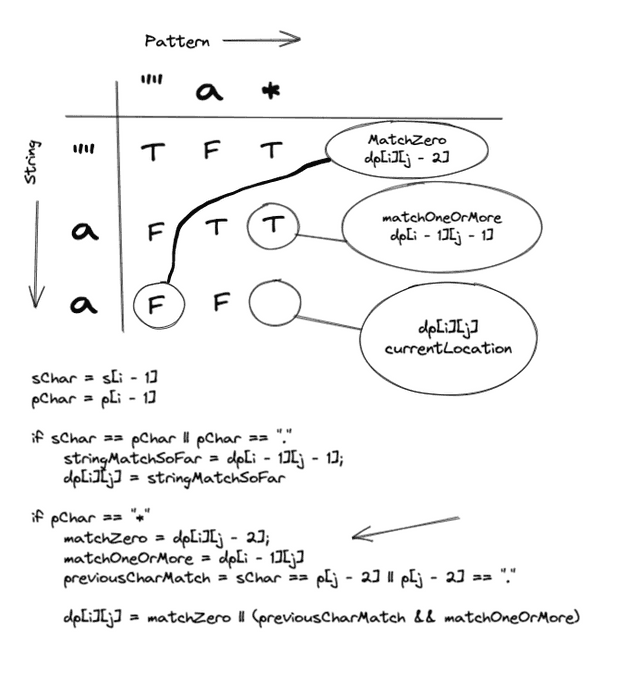 Pattern
"" a *
String
"" T F T
MatchZero
dp[i][j - 2]
a F T T
matchOneOrMore
dp[i - 1][j - 1]
a F F
dp[i][j]
currentLocation
sChar = s[i - 1]
pChar = p[i - 1]
if sChar == pChar || pChar == "."
stringMatchSoFar = dp[i - 1][j - 1];
dp[i][j] = stringMatchSoFar
if pChar == "*"
matchZero = dp[i][j - 2];
matchOneOrMore = dp[i - 1][j]
previousCharMatch = sChar == p[j - 2] || p[j - 2] == "."
dp[i][j] = matchZero || (previousCharMatch && matchOneOrMore)